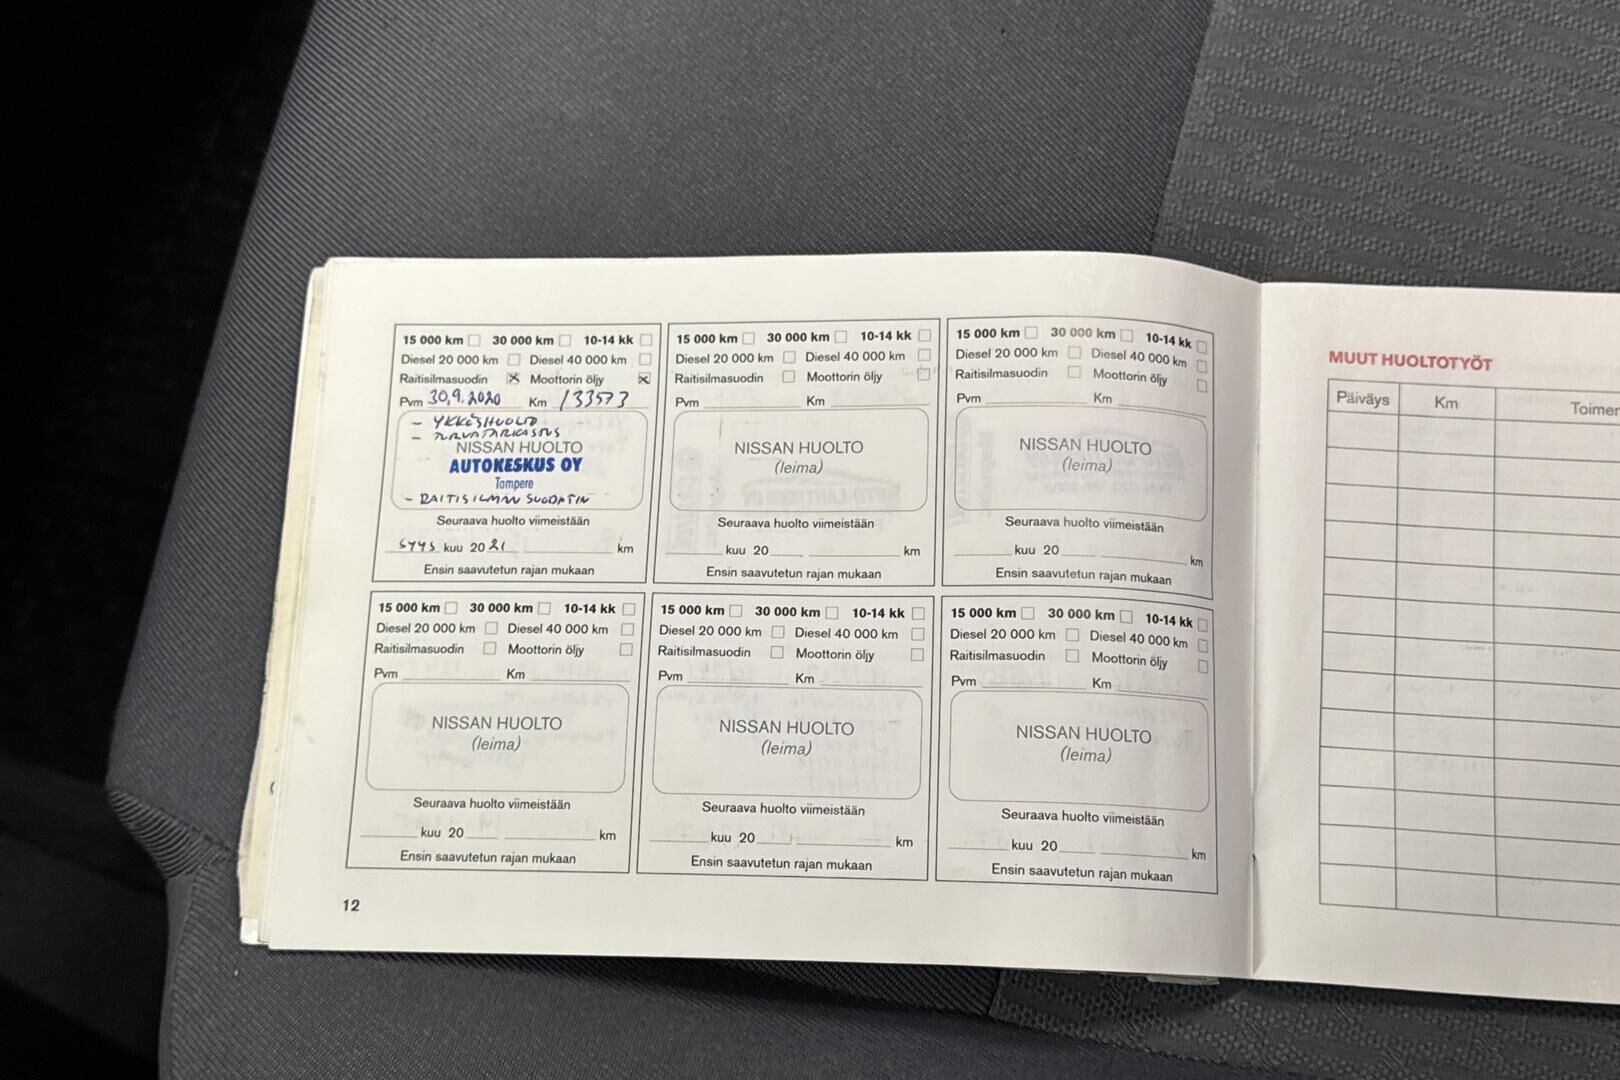 15 000 km 30 000 km 10-14 kk
Diesel 20 000 km Diesel 40 000 km
Raitisilmasuodin Moottorin öljy
Pvm 30.9.2020 Km 133573
- YKKÖSHUOLTO
- TURVATARKASTUS
NISSAN HUOLTO
AUTOKESKUS OY
Tampere
- RAITISILMAN SUODATIN
Seuraava huolto viimeistään
SYYS kuu 2021 km
Ensin saavutetun rajan mukaan
15 000 km 30 000 km 10-14 kk
Diesel 20 000 km Diesel 40 000 km
Raitisilmasuodin Moottorin öljy
Pvm Km
NISSAN HUOLTO
(leima)
Seuraava huolto viimeistään
kuu 20 km
Ensin saavutetun rajan mukaan
15 000 km 30 000 km 10-14 kk
Diesel 20 000 km Diesel 40 000 km
Raitisilmasuodin Moottorin öljy
Pvm Km
NISSAN HUOLTO
(leima)
Seuraava huolto viimeistään
kuu 20 km
Ensin saavutetun rajan mukaan
15 000 km 30 000 km 10-14 kk
Diesel 20 000 km Diesel 40 000 km
Raitisilmasuodin Moottorin öljy
Pvm Km
NISSAN HUOLTO
(leima)
Seuraava huolto viimeistään
kuu 20 km
Ensin saavutetun rajan mukaan
15 000 km 30 000 km 10-14 kk
Diesel 20 000 km Diesel 40 000 km
Raitisilmasuodin Moottorin öljy
Pvm Km
NISSAN HUOLTO
(leima)
Seuraava huolto viimeistään
kuu 20 km
Ensin saavutetun rajan mukaan
15 000 km 30 000 km 10-14 kk
Diesel 20 000 km Diesel 40 000 km
Raitisilmasuodin Moottorin öljy
Pvm Km
NISSAN HUOLTO
(leima)
Seuraava huolto viimeistään
kuu 20 km
Ensin saavutetun rajan mukaan
12
MUUT HUOLTOTYÖT
Päiväys Km Toimen